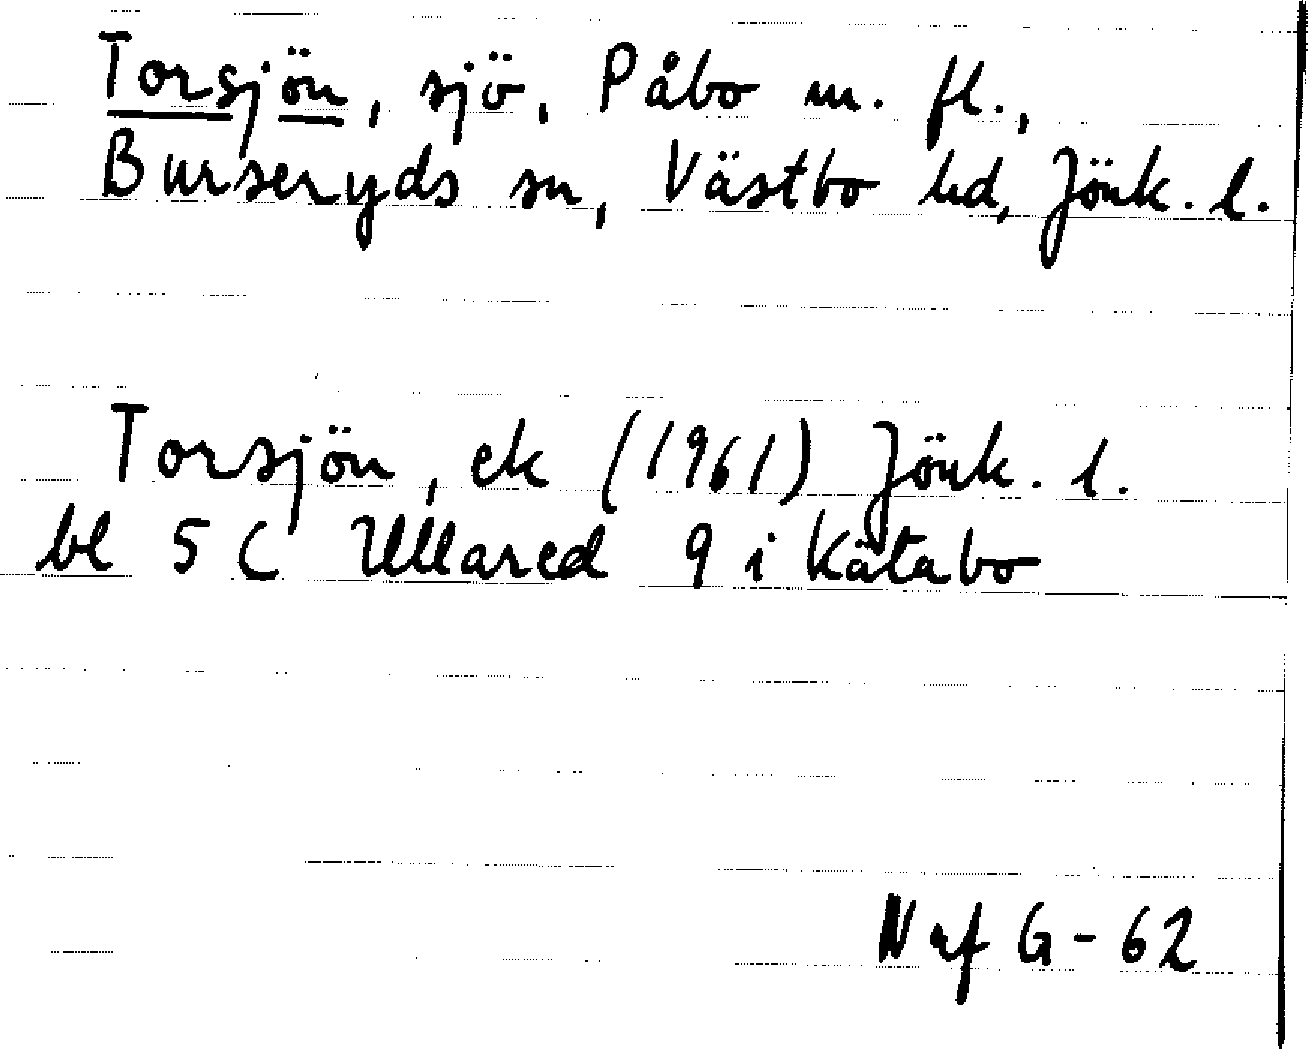 Torsjön, sjö, Påbo m. fl.,
Burseryds sn, Västbo hd, Jönk. l.
Torsjön, ek (1961) Jönk. l.
bl 5 C Ullared 9 i Kätabo
N af G-62